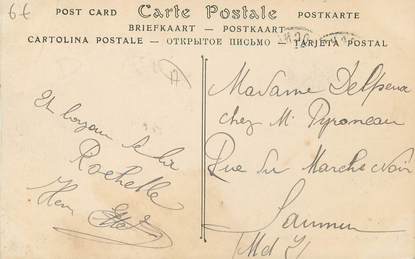 6€
POST CARD Carte Postale POSTKARTE
BRIEFKAART - POSTKAART
CARTOLINA POSTALE - ОТКРЫТОЕ ПИСЬМО - TARJETA POSTAL
A
Un bonjour de la
Rochelle
Henri
Madame Delpeux
chez Mr Pyroneau
Rue du Marché noir
Saumur
M et L